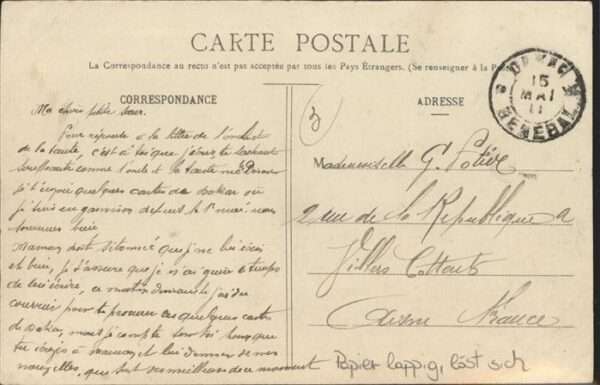 CARTE POSTALE
La Correspondance au recto n'est pas acceptée par tous les Pays Étrangers. (Se renseigner à la
CORRESPONDANCE
Ma chère petite sœur.
Pour répondre à la lettre de l'oncle et
de la tante c'est à toi que
comme l'oncle et la tante
je t'envoie quelques cartes de Dakar où
je suis en garnison depuis le 1er mai nous
sommes
Maman doit s'étonner que je ne lui écris
et bien, je t'assure que je n'ai guère le temps
de lui écrire, ce matin
courrir pour te procurer ces quelques cartes
de Dakar, mais je compte sur toi pour que
tu écrives à maman et lui donner de mes
nouvelles, qui sont meilleures en ce moment
3
ADRESSE
DAKAR
15
MAI
11
SENEGAL
Mademoiselle G.
2 rue de la République
Villers Cotterets
Aisne France
Papier lappig, löst sich